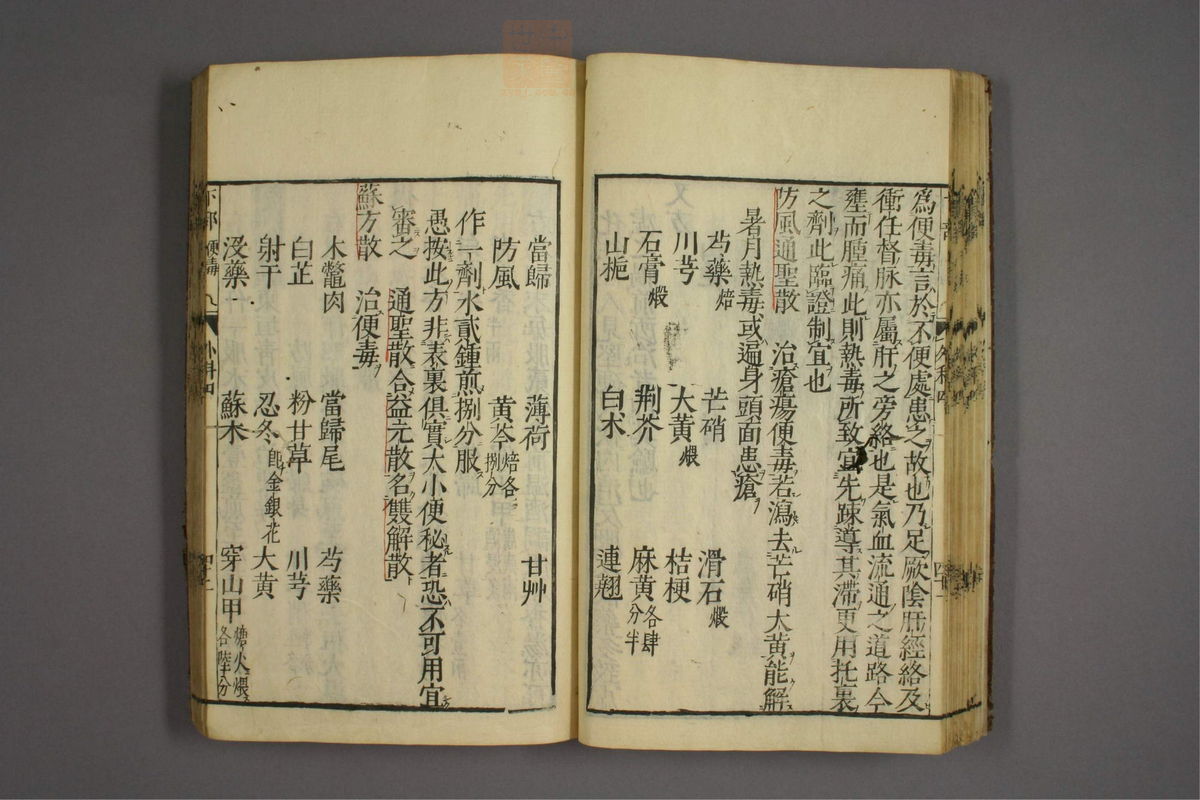 爲便毒言於不便處患之故也乃足厥陰肝經絡及
衝任督脉亦屬肝之旁絡也是氣血流通之道路今
壅而腫痛此則熱毒所致宜先疎導其滯更用托裏
之劑此臨證制宜也
防風通聖散 治瘡瘍便毒若瀉去芒硝大黄能解
暑月熱毒或遍身頭面患瘡
芍藥焙 芒硝 滑石煅
川芎 大黄煨 桔梗
石膏煅 荆芥 麻黄各肆分半
山梔 白朮 連翹
當歸 薄荷 甘艸
防風 黄芩焙各捌分
作一劑水貳鍾煎捌分服
愚按此方非表裏俱實大小便秘者恐不可用宜
審之 通聖散合益元散名雙解散
蘇方散 治便毒
木鼈肉 當歸尾 芍藥
白芷 粉甘草 川芎
射干 忍冬即金銀花 大黄
没藥 蘇木 穿山甲煻火煨各陸分
下部 便毒 外科四